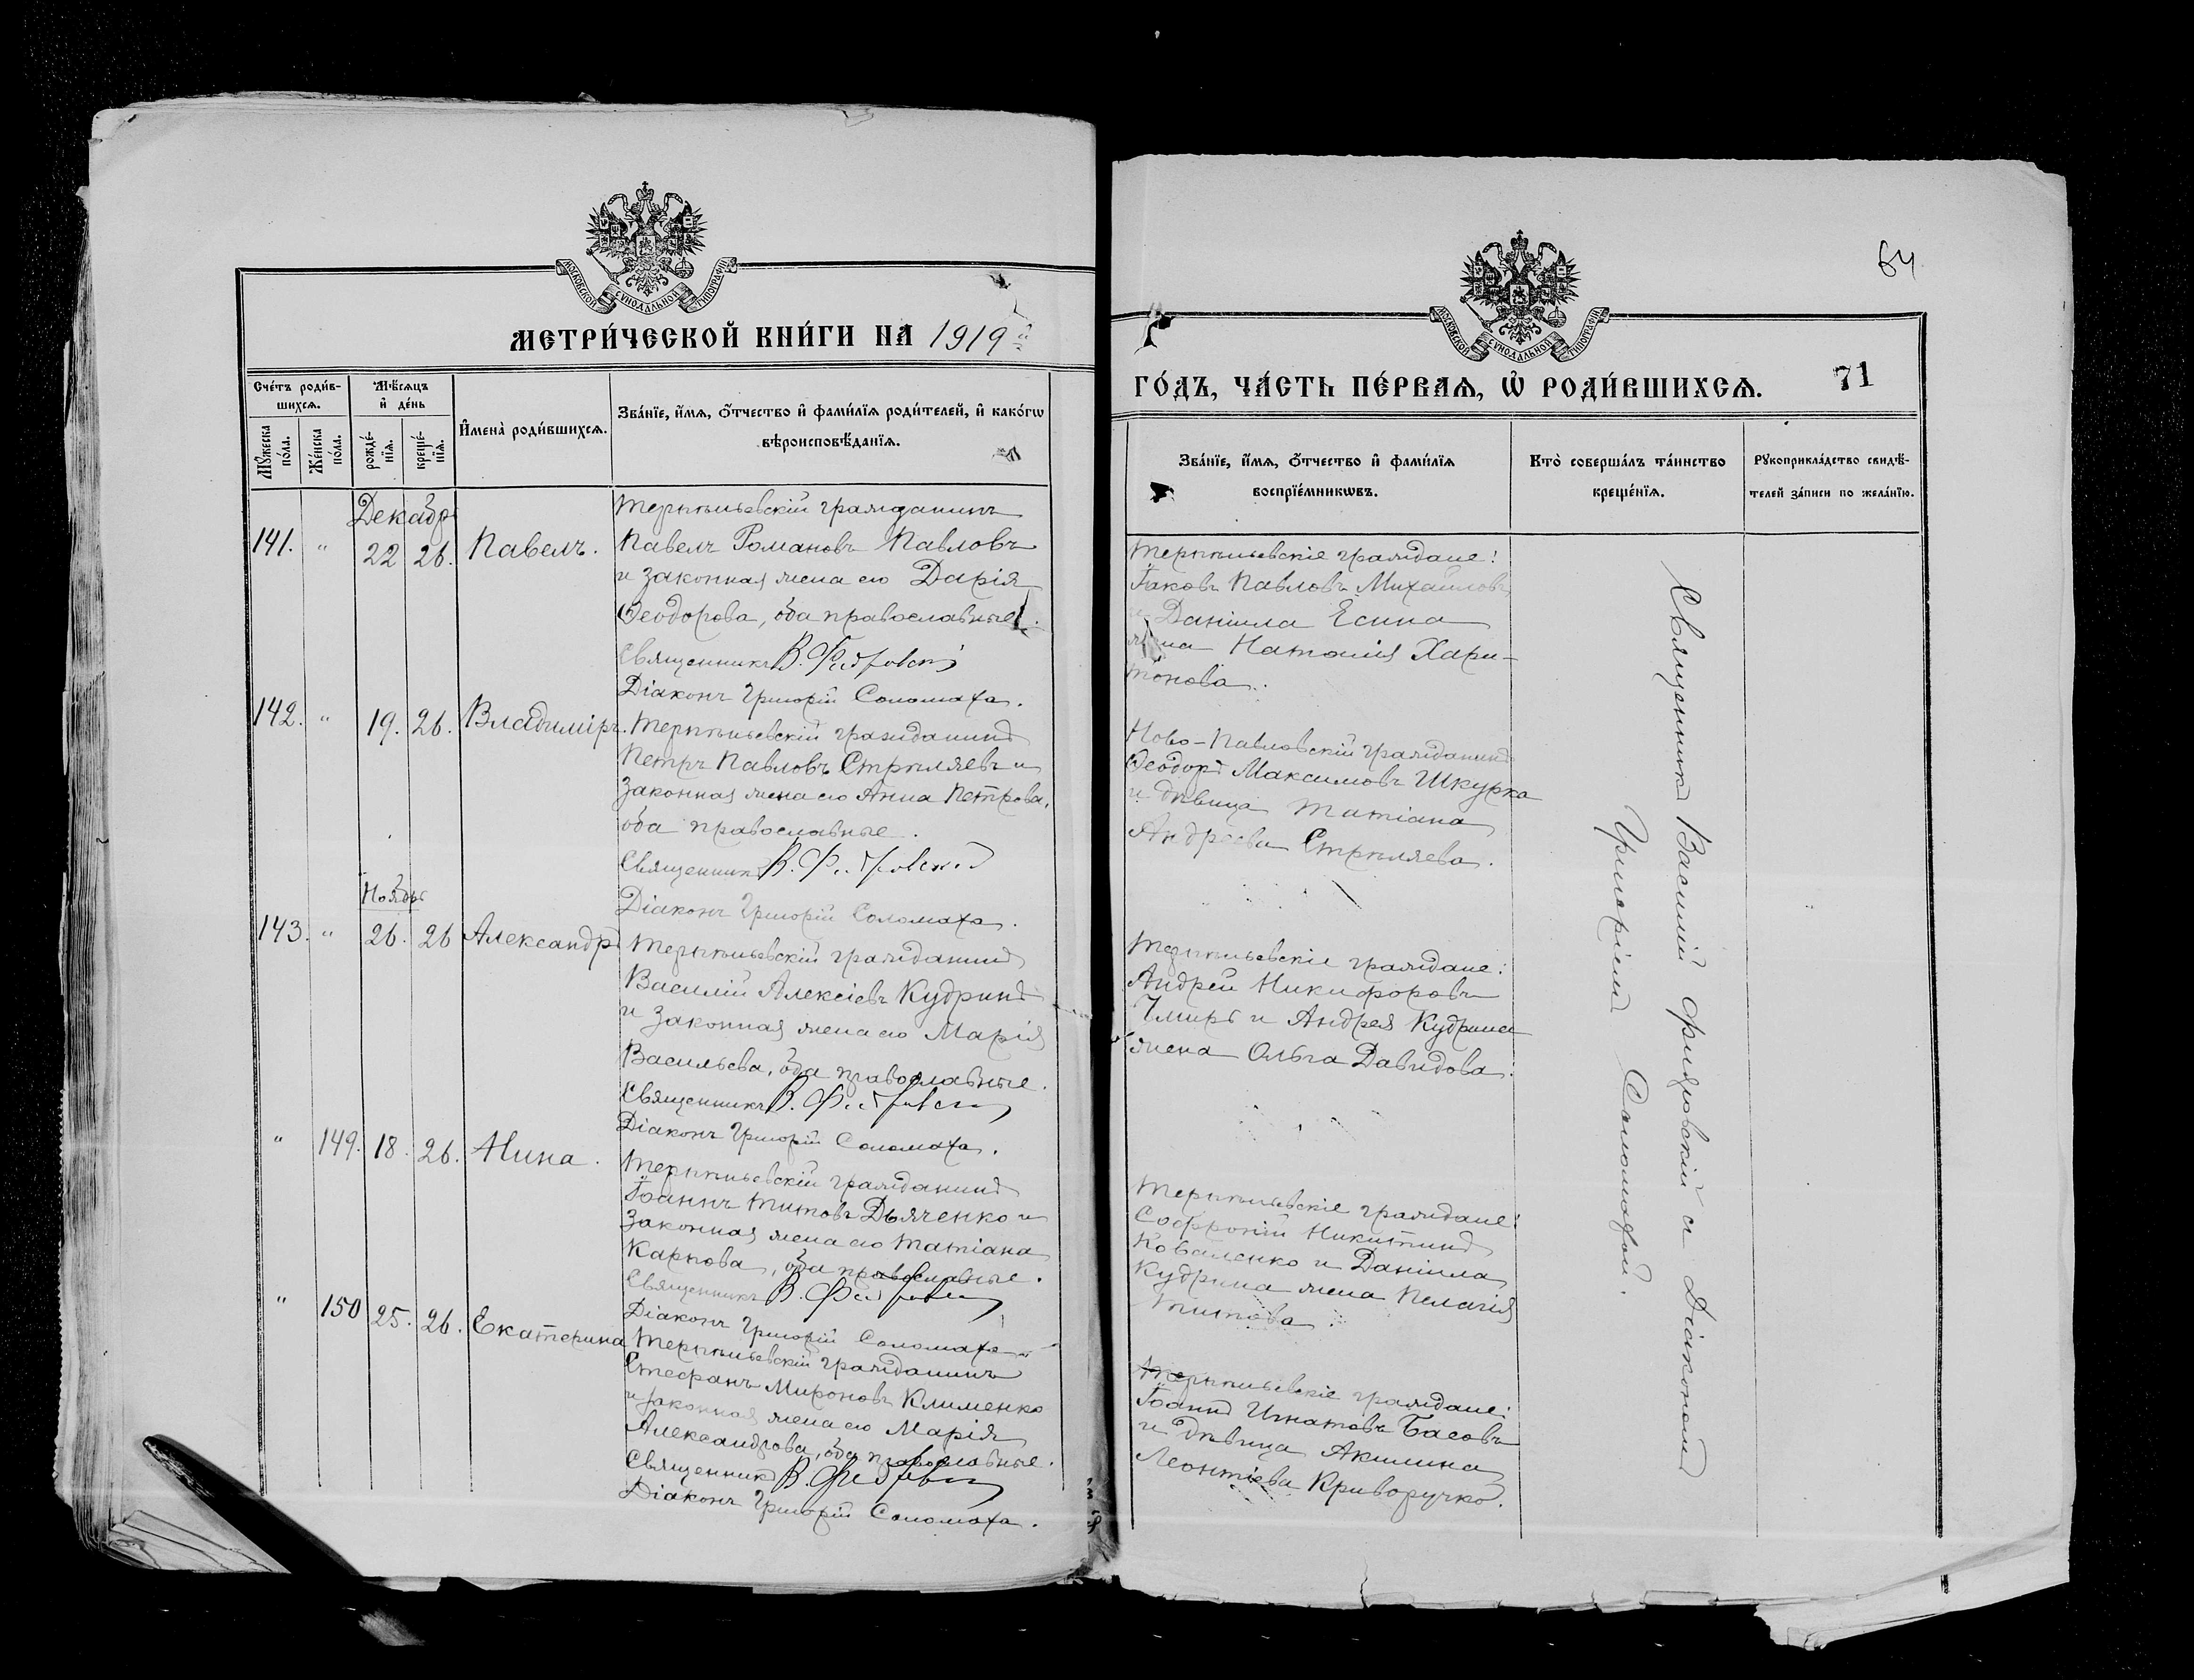 64
МОСКОВСКОЙ СУНОДАЛЬНОЙ ТИПОГРАФІИ
МЕТРИ́ЧЕСКОЙ КНИ́ГИ НА 1919й
Сче́тъ роди́в-
шихсѧ.
Мꙋ́жеска
по́ла.
Же́нска
по́ла.
Мѣ́сѧцъ
и҆ де́нь
рожде́-
нїѧ.
креще́-
нїѧ.
И҆мена̀ роди́вшихсѧ.
Зва́нїе, и҆́мѧ, ѻ҆́тчество и҆ фами́лїѧ роди́телей, и҆ како́гѡ
вѣроисповѣ́данїѧ.
Декабрь
141. " 22 26. Павелъ.
Терпѣньевскій гражданинъ
Павелъ Романовъ Павловъ
и законная жена его Дарія
Ѳеодорова, оба православные.
Священникъ В.
Діаконъ Григорій Соломаха.
142. " 19. 26. Владиміръ.
Терпѣньевскій гражданинъ
Петръ Павловъ Стрѣляевъ и
законная жена его Анна Петрова,
оба православные.
Священникъ В.
Діаконъ Григорій Соломаха.
Ноябрь
143. " 26. 26 Александръ
Терпѣньевскій гражданинъ
Василій Алексіевъ Кудринъ
и законная жена его Марія
Васильева, оба православные.
Священникъ В.
Діаконъ Григорій Соломаха.
" 149. 18. 26. Нина.
Терпѣньевскій гражданинъ
Іоаннъ Титовъ Дьяченко и
законная жена его Татіана
Карпова, оба православные.
Священникъ В.
Діаконъ Григорій Соломаха
" 150 25. 26. Екатерина
Терпѣньевскій гражданинъ
Стефанъ Мироновъ Клименко
и законная жена его Марія
Александрова, оба православные.
Священникъ В.
Діаконъ Григорій Соломаха.
МОСКОВСКОЙ СУНОДАЛЬНОЙ ТИПОГРАФІИ
ГО́ДЪ, ЧА́СТЬ ПЕ́РВАѦ, Ѽ РОДИ́ВШИХСѦ. 71
Зва́нїе, и҆́мѧ, ѻ҆́тчество и҆ фами́лїѧ
воспрїе́мникѡвъ.
Кто̀ соверша́лъ та́инство
креще́нїѧ.
Рꙋкоприкла́дство свидѣ́-
телей за́писи по жела́нїю.
Терпѣньевскіе граждане:
Іаковъ Павловъ Михайловъ
и Даніила Есина
жена Наталія Хари-
тонова.
Ново-Павловскій гражданинъ
Ѳеодоръ Максимовъ Шкурка
и дѣвица Татіана
Андреева Стрѣляева.
Терпѣньевскіе граждане:
Андрей Никифоровъ
Чмиръ и Андрея Кудрина
жена Ольга Давидова.
Терпѣньевскіе граждане:
Софроній Никитинъ
Коваленко и Даніила
Кудрина жена Пелагія
Титова.
Терпѣньевскіе граждане:
Іоаннъ Игнатовъ Басовъ
и дѣвица Акилина
Леонтіева Криворучко.
Священникъ Василій и Діакономъ
Григоріемъ Соломахой.